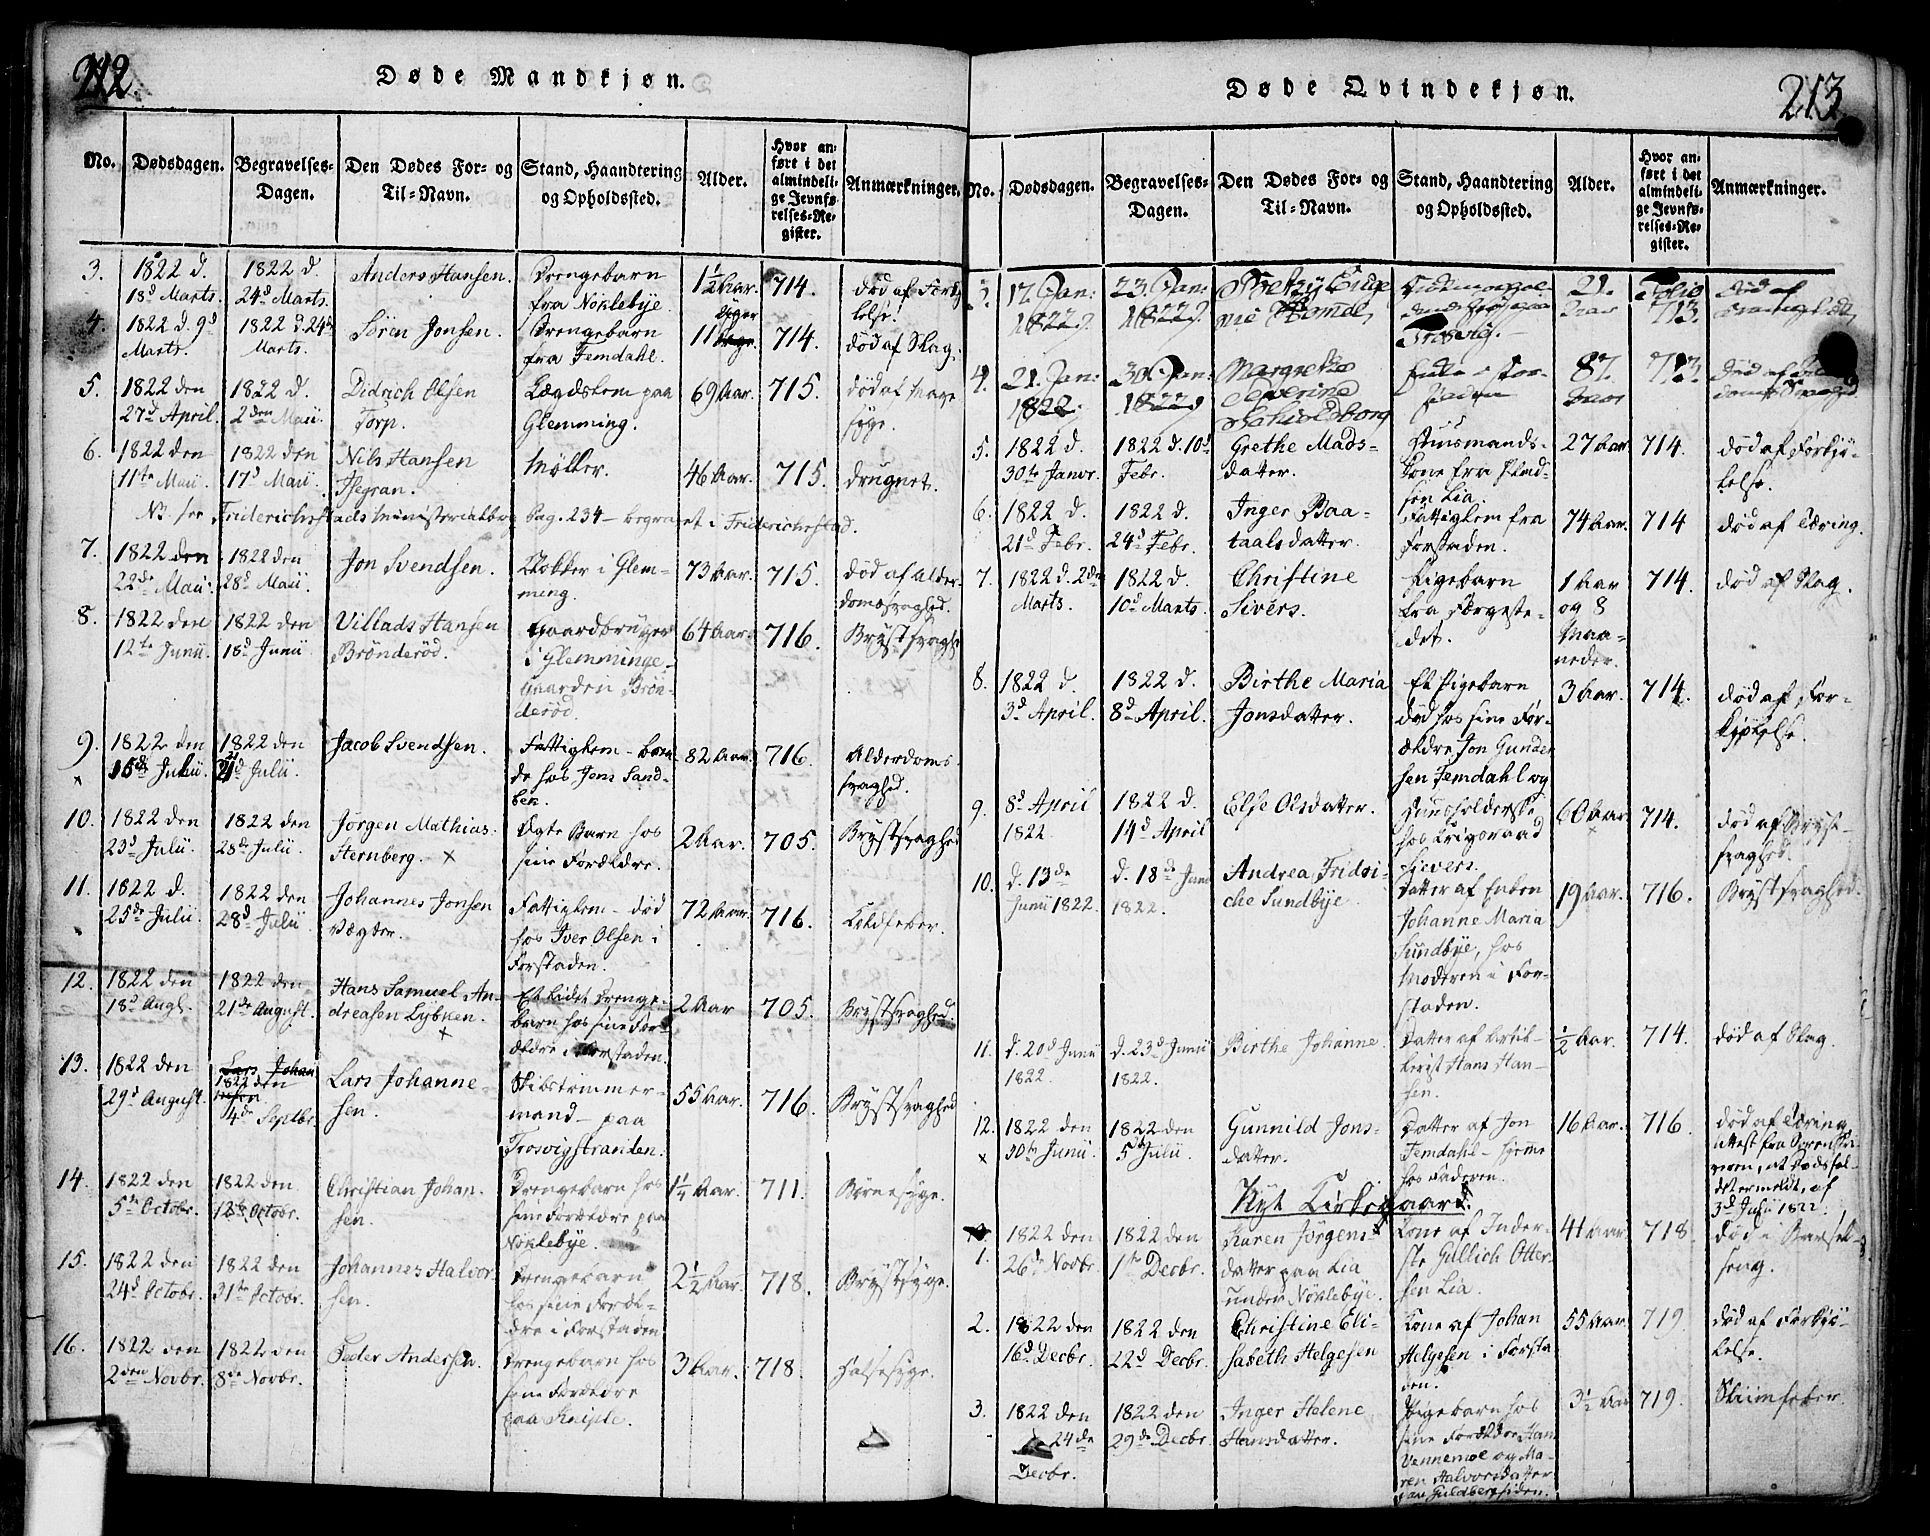 212.
Døde Mandkjøn.
No. Dødsdagen. Begravelses-Dagen. Den Dødes For- og Til-Navn. Stand, Haandtering og Opholdssted. Alder. Hvor anført i det almindelige Jevnførelses-Register. Anmærkninger.
3. 1822 d. 18d Marts. 1822 d. 24d Marts. Anders Hansen. Drengebarn fra Nöklebÿe. 1½ Aar. 714. død af
4. 1822 d. 9d Marts. 1822 d. 24de Marts. Sören Jonsen. Drengebarn fra Femdahl. 11 Uger 714. død af Slag.
5. 1822 den 27d April. 1822 d. 2den Maii. Didrich Olsen Torp. Lægdslem paa Glemming. 69 Aar. 715. død af
6. 1822 den 11te Maii. 1822 den 17d Maii. Nils Hansen Thegran. Möller. 46 Aar. 715. drugnet.
Nb. see Friderichsstads Ministerialbog Pag. 234 - begravet i Friderichsstad.
7. 1822 den 22de Maii. 1822 den 28d Maii. Jon Svendsen. Klokker i Glemming. 73 Aar. 715. død af Alderdomssvaghed.
8. 1822 den 12te Junii. 1822 den 18d Junii Villads Hansen Brönderöd. Gaardbruger i Glemminge- Gaarden Brönderöd. 64 Aar. 716. Brÿstsvaghed
9. 1822 den 15de Julii. 1822 den 21d Julii. Jacob Svendsen. Fattiglem - hos Jens Sand- 82 Aar. 716. Alderdomssvaghed.
10. 1822 den 23d Julii. 1822 den 28de Julii. Jörgen Mathias Sternberg. x Ægte Barn hos sine Forældre. 2 Aar. 705. Brÿstsvaghed
11. 1822 d. 25de Julii. 1822 den 28d Julii Johannes Jonsen Vægter. Fattiglem - død hos Iver Olsen i Forstaden. 72 Aar. 716. Koldfeber.
12. 1822 den 18d Augs. 1822 den 21de August. Hans Samuel Andreasen Lÿbken. x Et lidet Drengebarn hos sine Forældre i Forstaden. 2 Aar 705. Brÿstsvaghed.
13. 1822 den 29d August. 1822 den 4de Septbr. Lars Johannesen. Skibstimmermand - paa Trosvigstranden. 55 Aar. 716. Brÿstsvaghed
14. 1822 den 5te Octobr. 1822 den 12te Octobr. Christian Johansen. Drengebarn hos sine Forældre paa Nöklebÿe. 1¼ Aar. 711. Börnesÿge.
15. 1822 den 24d Octobr. 1822 den 31te Octobr. Johannes Halvorsen. Drengebarn hos sine Forældre i Forstaden 2½ Aar. 718. Brÿstsÿge.
16. 1822 den 2den Novbr. 1822 den 8de Novbr. Peder Andersen. Drengebarn hos sine Forældre paa Kniple. 3 Aar. 718. Halsesÿge.
213.
Døde Qvindekjøn.
No. Dødsdagen. Begravelses-Dagen. Den Dødes For- og Til-Navn. Stand, Haandtering og Opholdssted. Alder. Hvor anført i det almindelige Jevnførelses-Register. Anmærkninger.
3. 17. Jan: 1822. 23. Jan: 1822. 21. Aar Folio 713. død af
4. 21. Jan: 1822. 30. Jan: 1822 Margrethe Severine 87. Aar 713. død af
5. 1822 d. 30te Janvr. 1822 d. 10d Febr. Grethe Madsdatter. Huusmands-Kone fra Pladsen Lia. 27 Aar 714. død af Forkjölelse.
6. 1822 d. 21d Febr. 1822 d. 24d Febr. Inger Baataalsdatter. Fattiglem fra Forstaden. 74 Aar. 714 død af Tæring.
7. 1822 d. 2den Marts. 1822 d. 10d Marts. Christine Sivers. Pigebarn fra Færgestedet. 1 Aar og 8 Maaneder. 714. død af Slag.
8. 1822 d. 3d April. 1822 d. 8d April. Birthe Maria Jonsdatter. Et Pigebarn død hos sine Forældre Jon Gundersen Femdahl og 3 Aar. 714. død af Forkjölelse.
9. 8d April 1822 1822 d. 14d April Else Olsdatter. Huusholderske hos Krigsraad Sievers. 60 Aar 714. død af Brÿstsvaghed.
10. d. 13de Junii 1822. d. 18de Junii 1822. Andrea Fridriche Sundbÿe. Datter af Enken Johanne Maria Sundbÿe, hos Moderen i Forstaden. 19 Aar. 716. Brÿstsvaghed.
11. d. 20d Junii 1822. d. 23d Junii 1822. Birthe Johanne Datter af Hans Hansen. ½ Aar. 714. død af Slag.
12. x 1822 den 30te Junii. 1822 den 5te Julii. Gunnild Jonsdatter. Datter af Jon Femdahl - hjemme hos Faderen. 16 Aar. 716. død af Tæring attest fra Sorenskriveren, at Dødsfaldet er meldt, af 3d Julii 1822.
Nyt Kirkegaard.
1. 1822 den 26d Novbr. 1822 den 1ste Decbr. Karen Jörgensdatter paa Lia under Nöklebÿe. Kone af Inderste Gullich Ottersen Lia. 41 Aar. 718. død i Barselseng.
2. 1822 den 16d Decbr. 1822 den 22d Decbr. Christine Elisabeth Helgesen Kone af Johan Helgesen i Forstaden. 55 Aar. 719. død af Forkjölelse.
3. 1822 den 24de Decbr. 1822 den 29de Decbr. Inger Helene Hansdatter. Pigebarn hos sine Forældre Hans Vennemoe og Maren Halvorsdatter paa Guldbergsiden. 3½ Aar 719. Sliimfeber